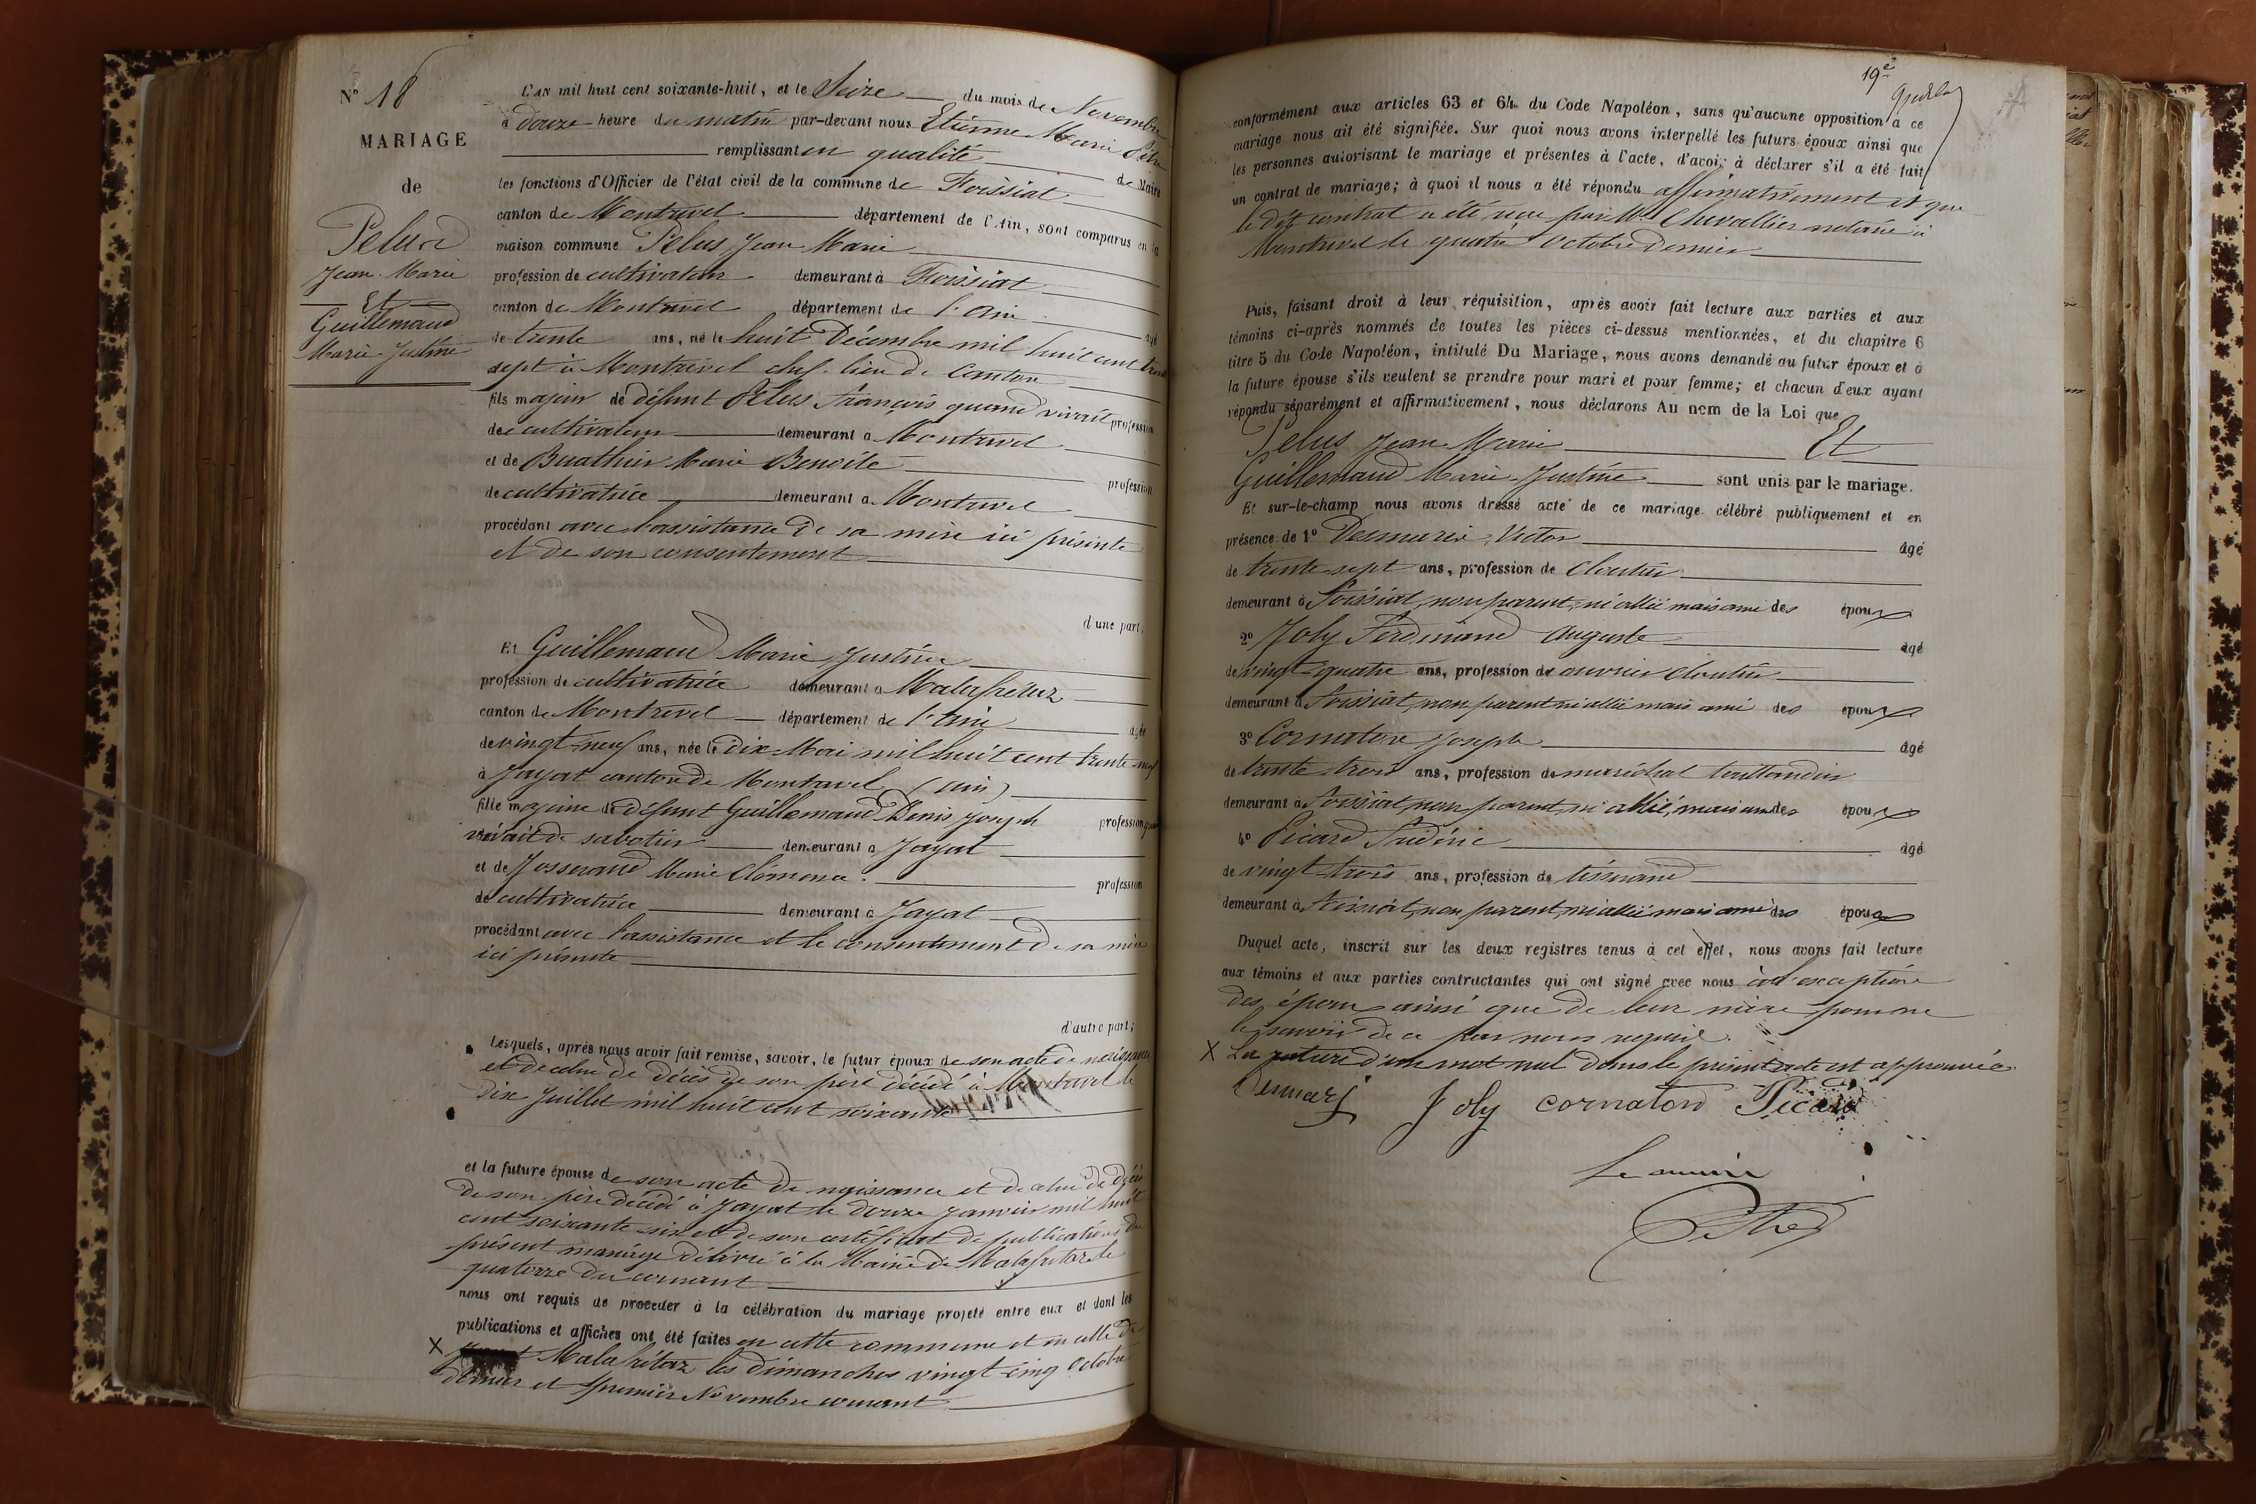 N° 18
MARIAGE
de
Pelus
Jean Marie
Et
Guillemaud
Marie Justine
L'AN mil huit cent soixante-huit, et le Seize du mois de Novembre
à douze heure du matin par-devant nous Etienne Marie
remplissant en qualité de Maire
les fonctions d'Officier de l'état civil de la commune de Foissiat
canton de Montrevel département de l'Ain, sont comparus en la
maison commune Pelus Jean Marie
profession de cultivateur demeurant à Foissiat
canton de Montrevel département de l'Ain âgé
de trente ans, né le huit Décembre mil huit cent trente
sept à Montrevel chef-lieu de Canton
fils majeur de défunt Pelus François quand vivait profession
de cultivateur demeurant à Montrevel
et de Buathier Marie Benoîte profession
de cultivatrice demeurant à Montrevel
procédant avec l'assistance de sa mère ici présente
et de son consentement
d'une part,
Et Guillemaud Marie Justine
profession de cultivatrice demeurant à Malafretaz
canton de Montrevel département de l'Ain âgée
de vingt-neuf ans, née le dix Mai mil huit cent trente neuf
à Jayat canton de Montrevel (Ain)
fille majeure de défunt Guillemaud Denis Joseph profession quand
vivait de sabotier demeurant à Jayat
et de Josserand Marie Clémence profession
de cultivatrice demeurant à Jayat
procédant avec l'assistance et le consentement de sa mère
ici présente
d'autre part;
Lesquels, après nous avoir fait remise, savoir, le futur époux de son acte de naissance
et de celui de décès de son père décédé à Montrevel le
dix Juillet mil huit cent soixante
et la future épouse de son acte de naissance et de celui de décès
de son père décédé à Jayat le douze Janvier mil huit
cent soixante six et de son certificat de publications du
présent mariage délivré à la Mairie de Malafretaz le
quatorze du courant
nous ont requis de procéder à la célébration du mariage projeté entre eux et dont les
publications et affiches ont été faites en cette commune et en celle de
X Malafretaz les dimanches vingt-cinq Octobre
dernier et premier Novembre courant
19e
conformément aux articles 63 et 64 du Code Napoléon, sans qu'aucune opposition à ce
mariage nous ait été signifiée. Sur quoi nous avons interpellé les futurs époux ainsi que
les personnes autorisant le mariage et présentes à l'acte, d'avoir à déclarer s'il a été fait
un contrat de mariage; à quoi il nous a été répondu affirmativement et que
le dit contrat a été reçu par Me Chevallier notaire à
Montrevel le quatre Octobre dernier
Puis, faisant droit à leur réquisition, après avoir fait lecture aux parties et aux
témoins ci-après nommés de toutes les pièces ci-dessus mentionnées, et du chapitre 6
titre 5 du Code Napoléon, intitulé Du Mariage, nous avons demandé au futur époux et à
la future épouse s'ils veulent se prendre pour mari et pour femme; et chacun d'eux ayant
répondu séparément et affirmativement, nous déclarons Au nom de la Loi que
Pelus Jean Marie Et
Guillemaud Marie Justine sont unis par le mariage.
Et sur-le-champ nous avons dressé acte de ce mariage célébré publiquement et en
présence de 1° Desmaris Victor âgé
de trente-sept ans, profession de cloutier
demeurant à Foissiat, non parent, ni allié mais ami des époux
2° Joly Ferdinand Auguste âgé
de vingt-quatre ans, profession de ouvrier cloutier
demeurant à Foissiat, non parent ni allié mais ami des époux
3° Cornaton Joseph âgé
de trente-trois ans, profession de maréchal taillandier
demeurant à Foissiat, non parent, ni allié, mais ami des époux
4° Picard Frédéric âgé
de vingt-trois ans, profession de tisserand
demeurant à Foissiat, non parent, ni allié mais ami des époux
Duquel acte, inscrit sur les deux registres tenus à cet effet, nous avons fait lecture
aux témoins et aux parties contractantes qui ont signé avec nous à l'exception
des époux ainsi que de leur mère pour ne
le savoir de ce par nous requis.
X La rature d'un mot nul dans le présent acte est approuvée
Joly Cornaton Picard
Le maire